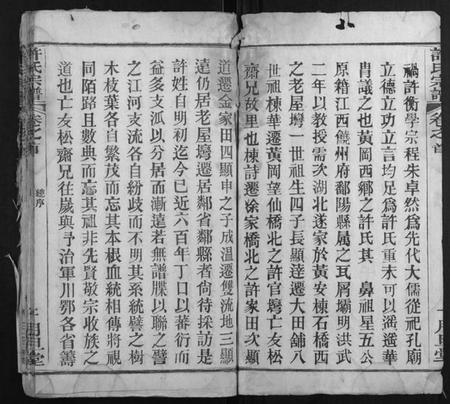 許氏宗譜
卷之首
禍許衡學宗程朱卓然為先代大儒從祀孔廟
立德立功立言均足為許氏重末可以遙遙華
冑議之也黃岡西鄉之許氏其 鼻祖星五公
原籍江西饒州府鄱陽縣屬之瓦屑壩明洪武
二年以教授需次湖北遂家於黃安棟石橋西
之老屋塆一世祖生四子長顯達遷大田舖八
世祖棟華遷黃岡望仙橋北之許官塆亡友松
齋兄故里也棟詩遷徐家橋北之許家田次顯
道遷金家田四顯申之子成溫遷雙流地三顯
遠仍居老屋塆遷居鄰省鄰縣者尚待採訪是
許姓自明初迄今已近六百年丁口以蕃衍而
益多支派以分居而漸遠若無譜牒以聯之譬
之江河支流各自紛歧而不明其系統譬之樹
木枝葉各自繁茂而忘其本根血統相傳將視
同陌路且數典而忘其祖非先賢敬宗收族之
道也亡友松齋兄往歲與予治軍川鄂各省籌
許氏宗譜
卷之首
總序